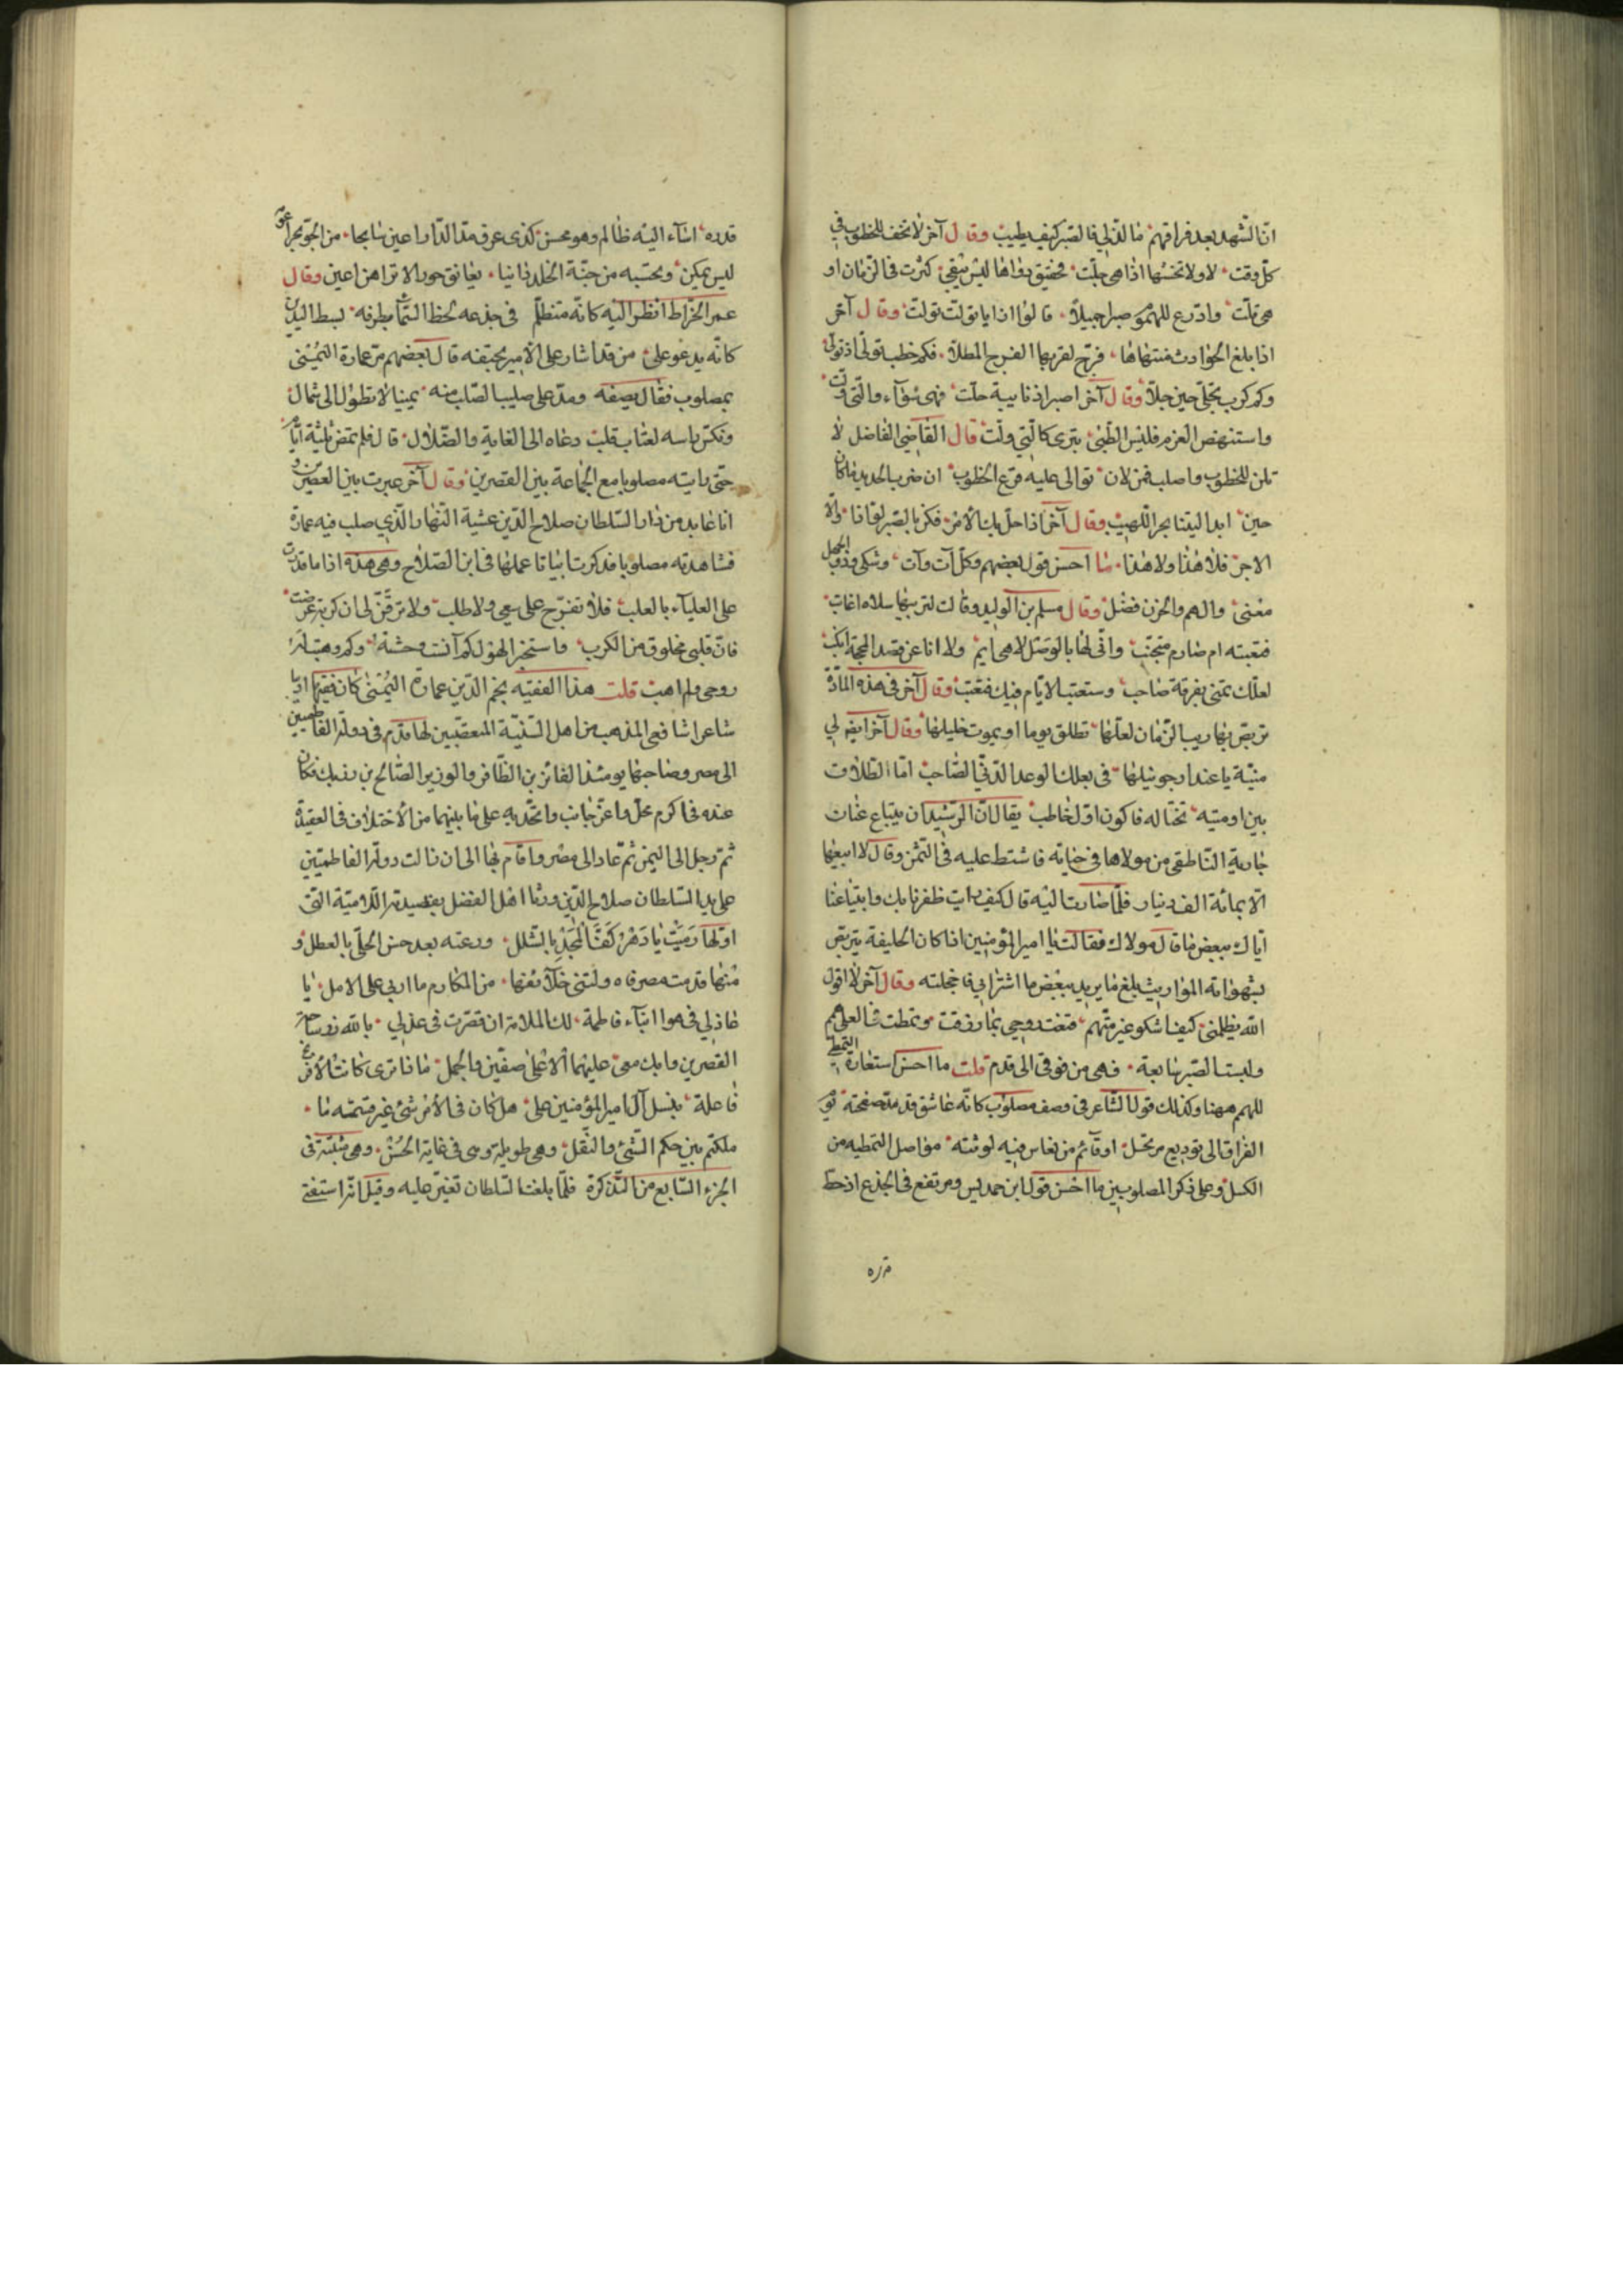 انّ الشهد بعد فراقهم ما لذّ لي فالصبر كيف يطيب وقال آخر لا تخف للخطوب في
كلّ وقت لا ولا تخشها اذا هي جلّت فحقيق دواها ليس يبقي كثرت في الزمان او
هي قلّت وادّرع للهموم صبرا جميلا قالوا اذا ما تولت تولت وقال آخر
اذا بلغ الحوادث منتهاها فرجّ لقربها الفرج المطلا فكم خطب تولى اذ تولى
وكم كرب تجلّى حين جلّا وقال آخر اصبر اذ نايبة حلّت فهي سوآء والّتي ولّت
واستنهض العزم فليس الظبي يترى كالتي ولّت قال القاضي الفاضل لا
تلن للخطوب واصلب فمن لان توالى عليه قرع الخطوب ان ضرب الحديد ما كان
حين ابدا ليتنا بحر اللهيب وقال آخر اذا حلّ بك الأمر فكن بالصبر لواذا والّا
الاجر فلا هذا ولا هذا ما احسن قول بعضهم وكلّ آت وآت وشكى وذوو الجهل
مغنى والهم والحزن فضل وقال مسلم بن الوليد وقالت لتربيها سلاه اغايب
فنعتبه ام صارم متجنّب وانّى لها بالوصل لا هي ايم ولا انا عن قصد المحجة انكب
لعلّك تمنى بفرقة صاحب وستعتب الايّام فيك فتعتب وقال آخر في هذه المادّة
تربّص بها ريب الزمان لعلّها تطلق يوما او يموت خليلها وقال آخر ايضا لي
منيّة يا عند ارجو نيلها في بعلك الوعد الدنيّ الصاحب امّا الطلاق
يبن او منيه تختاله فاكون اول خاطب يقال انّ الرشيد ان يبتاع عنان
جارية الناطقي من مولاها في حياته فاشتط عليه في الثمن وقال لا ابيعها
الّا بمائة الف دينار فلمّا صارت اليه قال كيف رايت ظفرنا بك وابتياعنا
ايّاك ببعض ما قال مولاك فقالت يا امير المؤمنين اذا كان الخليفة يتربص
بشهواته المواريث بلغ ما يريد ببعض ما اشتراني فاخجلته وقال آخر لا اقول
الله يظلمني كيف اشكو غير متّهم قنعت روحي بما رزقت وتمطت في العلى همم
ولبست الصبر سابغة فهي من فوقي الى قدم قلت ما احسن استعارة التمطي
للهمم ههنا وكذلك قول الشاعر في وصف مصلوب كانّه عاشق قد مدّ صفحته يوم
الفراق الى توديع مرتحل او قآئم من نعاس فيه لوثته مواصل لتمطيه من
الكسل وعلى ذكر المصلوبين ما احسن قول ابن حمديس ومرتفع في الجذع اذ حطّ
قدره
قدره اسآء اليه ظالم وهو محسن كذى غرق مدّ الذراعين سابحا من الجوّ بحرا عومه
ليس يمكن وتحسبه من جنّة الخلد دانيا يعانق حورا لا تراهن اعين وقال
عمر الخرّاط انظر اليه كانه متظلّم في جذعه لحظ السمآء بطرفه بسط اليدين
كانّه يدعو على من قد اشار على الامير بحتفه قال بعضهم مرّ عمارة اليمنى
بمصلوب فقال يصفه ومدّ على صليب الصلب منه يمينا لا تطول الى شمال
ونكس راسه لعتاب قلب دعاه الى الغاية والضلال قال فلم تمض ثلثة ايّام
حتى رايته مصلوبا مع الجماعة بين القصرين وقال آخر عبرت بين القصرين و
انا عايد من دار السلطان صلاح الدّين عشية النهار الّذي صلب فيه عمارة
فشاهدته مصلوبا فذكرت ابياتا عملها في ابن الصلاح وهي هذه اذا ما قدرت
على العليآء بالعلب فلا تفرح على سعي ولا طلب ولا ترقّن لي ان كربة عرضت
فانّ قلبي مخلوق من الكرب فاستخبر الهول كم آنست وحشته وكم وهبت له
روحي ولم اهب قلت هذا الفقيه نجم الدّين عمارة اليمنى كان فقيها اديبا
شاعرا شافعي المذهب من اهل السنّية المتعصّبين لها قدم في دولة الفاطميين
الى مصر وصاحبها يومئذ الفائز بن الظافر والوزير الصّالح بن رزيك فكان
عنده في اكرم محلّ واعزّ جانب واتّحد به على ما بينهما من الأختلاف في العقيدة
ثم رحل الى اليمن ثمّ عاد الى مصر واقام بها الى ان زالت دولة الفاطميّين
على يد السلطان صلاح الدّين ورثا اهل الفضل بقصيدته اللاميّة التي
اوّلها رميت يا دهر كفّ المجد بالشلل ورعته بعد حسن الحلّى بالعطل و
منها قدمت مصر فاولتني خلآئفها من المكارم ما اربى على الامل يا
عاذلي في هوا ابنآء فاطمة لك الملامة ان قصّرت في عذلي بالله زر ساحة
القصرين وابك معي عليهما لا على صفّين والجمل ماذا ترى كانت الافرنج
فاعلة بنسل آل امير المؤمنين علي هل كان في الأمر شئ غير قسمته ما
ملكتم بين حكم السّبي والنّقل وهي طويلة وسى في غاية الحسن وهي مثبتة في
الجزء السّابع من التذكرة فلمّا بلغت السّلطان تغيّر عليه وقيل انّه استفتى